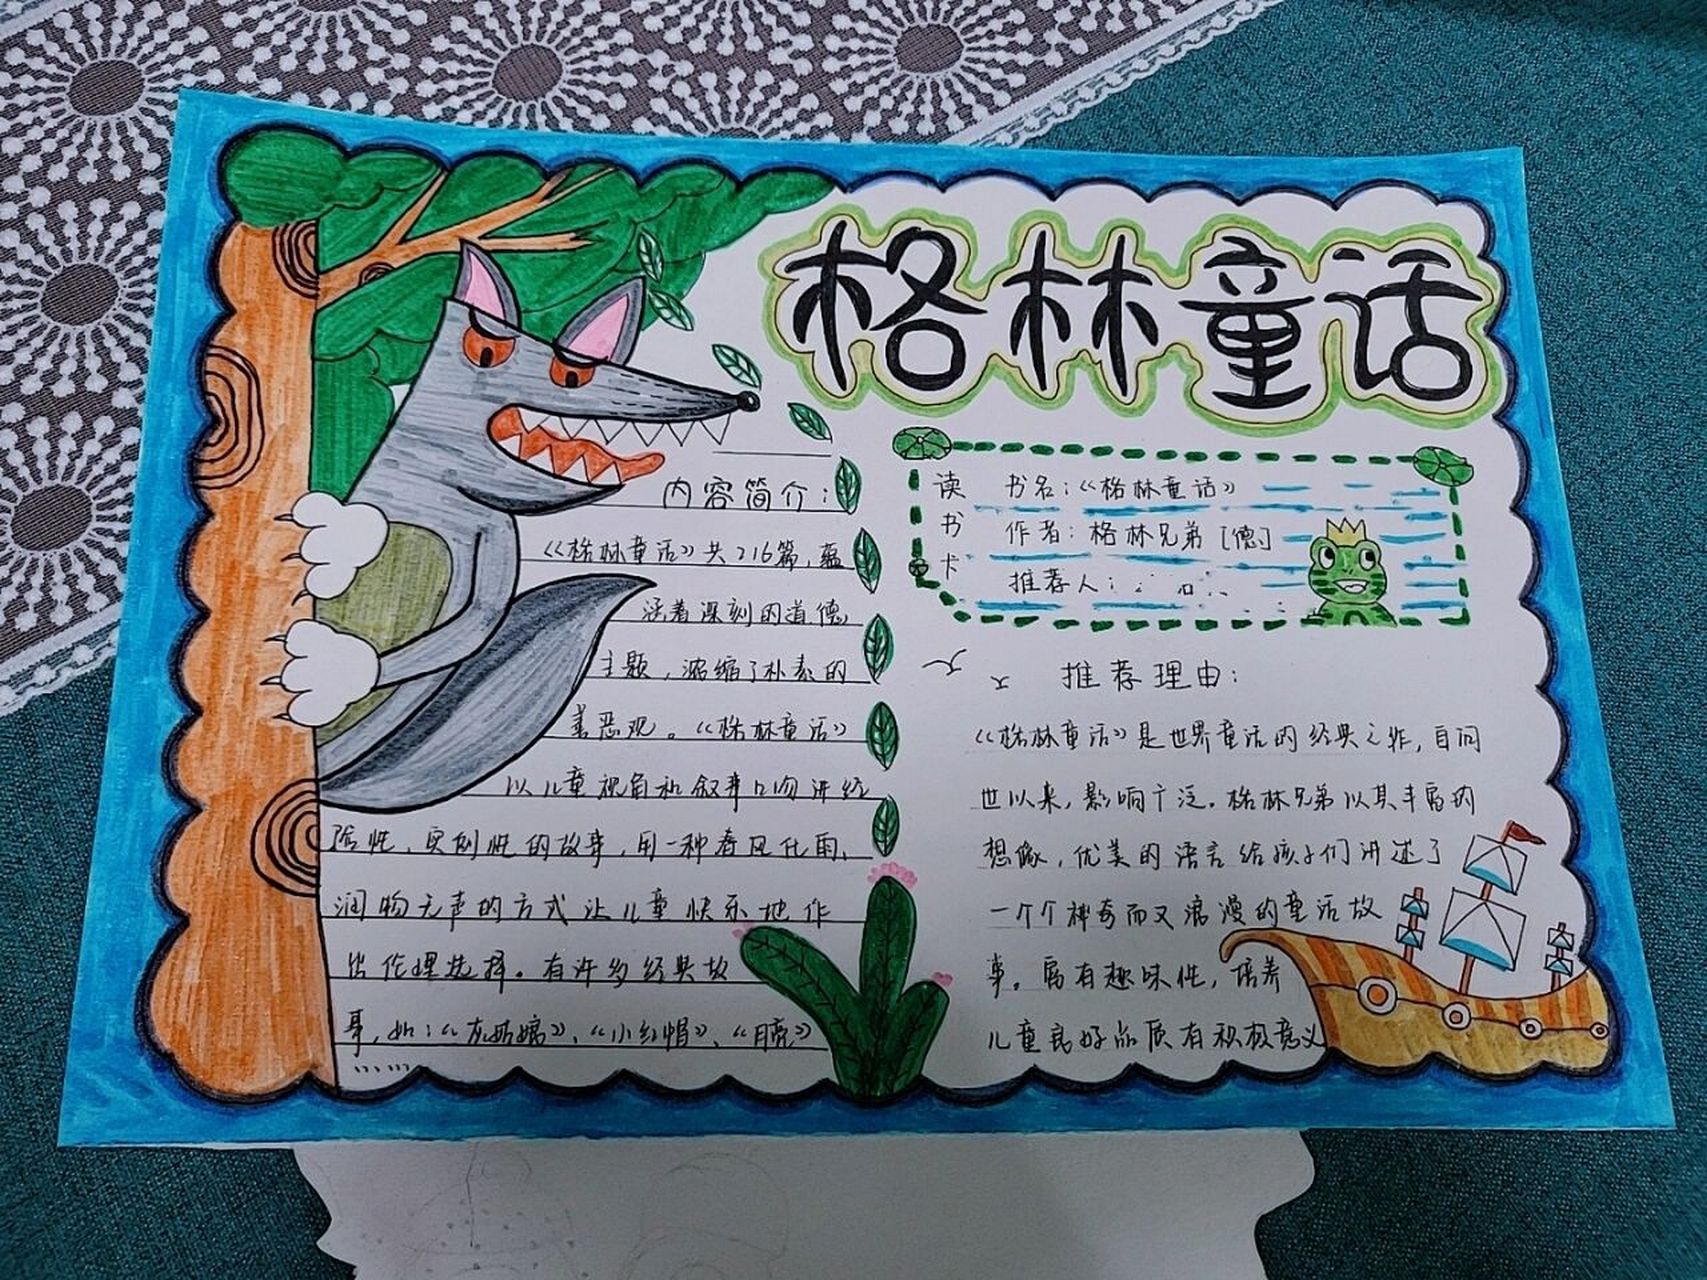 格林童话
内容简介:
《格林童话》共216篇,蕴
涵着深刻的道德
主题,浓缩了朴素的
善恶观。《格林童话》
以儿童视角和叙事口吻讲经
验性、实例性的故事,用一种春风化雨、
润物无声的方式让儿童快乐地作
出伦理选择。有许多经典故
事,如:《灰姑娘》、《小红帽》、《月亮》
……
读书卡
书名:《格林童话》
作者:格林兄弟[德]
推荐人:
推荐理由:
《格林童话》是世界童话的经典之作,自问
世以来,影响广泛。格林兄弟以其丰富的
想像,优美的语言给孩子们讲述了
一个个神奇而又浪漫的童话故
事。富有趣味性,培养
儿童良好品质有积极意义